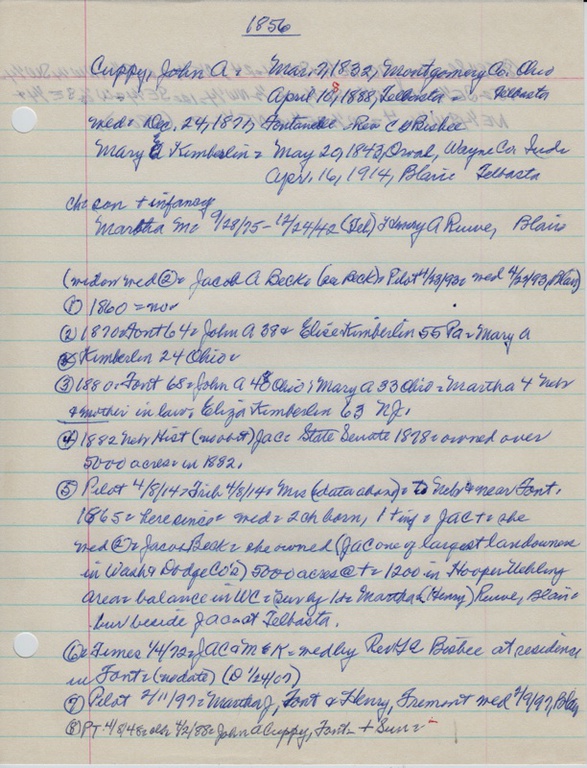 1856
Cuppy, John A = Mar. 7, 1832, Montgomery Co. Ohio
April 18, 1888, Telbasta = Telbasta
med = Dec. 24, 1871, Fontanelle = Rev Bisbee
Mary E Kimberlin = May 20, 1843, Wayne Co. Inde
Apr. 16, 1914, Blair = Telbasta
ch = son + infancy
Martha M = 9/28/75 - 12/24/42 (Feb) Henry A Ruwe, Blair
(widow med ② = Jacob A Beck = (see Beck) = Pilot 4/23/93 = med 4/23/93, Blair)
① 1860 = no =
② 1870 = Font 64 = John A 38 & Eliza Kimberlin 55 Pa = Mary A
Kimberlin 24 Ohio =
③ 1880 = Font 68 = John A 48 Ohio; Mary A 33 Ohio = Martha 4 Neb
& mother in law = Eliza Kimberlin 63 NJ.
④ 1882 Neb Hist (no abst) JAC = State Senate 1878 = owned over
5000 acres = in 1882.
⑤ Pilot 4/8/14 = Trib 4/8/14 = Mrs (data above) = to Neb & near Font.
1865 = here since = med = 2 ch born, 1 = JAC + = she
med ② = Jacob Beck = she owned (JAC one of largest landowners
in Wash & Dodge Co's) 5000 acres @ + = 1200 in Hooper Uehling
area = balance in WC = Surv by 1 d = Martha = (Henry) Ruwe, Blair =
bur beside JAC at Telbasta.
⑥ Times 1/4/72 = JAC & M K = med by Rev Bisbee at residence
in Font = (no date) (D 12/24/07)
⑦ Pilot 2/11/97 = Martha J, Font & Henry, Fremont med 2/9/97, Blair
⑧ PT 4/8/48 = 4/2/88 = John A Cuppy, Font = + Sun =